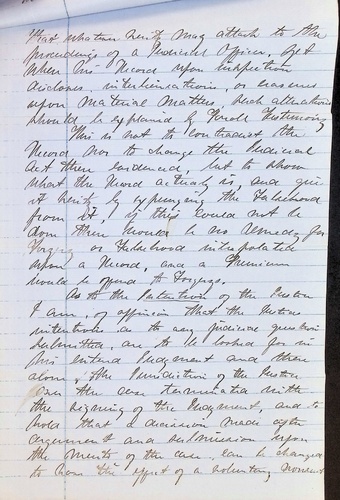 that whatever verity may attach to the
proceedings of a Judicial Officer, yet
when his Record upon inspection
discloses interlineations, or erasures
upon material matters, such alterations
should be explained by Parol testimony
This is not to contradict the
Record nor to change the Judicial
act there evidenced, but to show
what the Record actually is, and give
it verity by expunging the Falsehood
from it, if this could not be
done there would be no remedy for
Forgery or Falsehood interpolated
upon a Record, and a Premium
would be opened to Forgers.
As to the intention of the Justice
I am of opinion that the Justices
intentions as to any judicial question
submitted, are to be looked for in
his entered Judgment and there
alone, The Jurisdiction of the Justice
over the case terminated with
the signing of the Judgment, and to
hold that a decision made after
argument and submission upon
the merits of the case, can be changed
to have the effect of a voluntary nonsuit